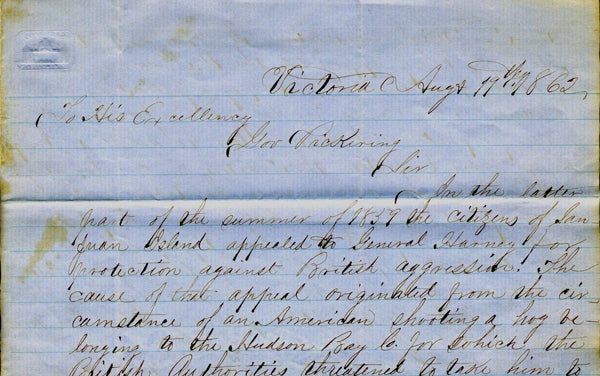 Victoria C Augt 19th 1862,
To His Excellency
Gov Pickering
Sir
In the latter
part of the summer of 1859 the citizens of San
Juan Island appealed to General Harney for
protection against British aggression. The
cause of that appeal originated from the cir-
cumstance of an American shooting a hog be-
longing to the Hudson Bay C. for which the
British Authorities threatened to take him to